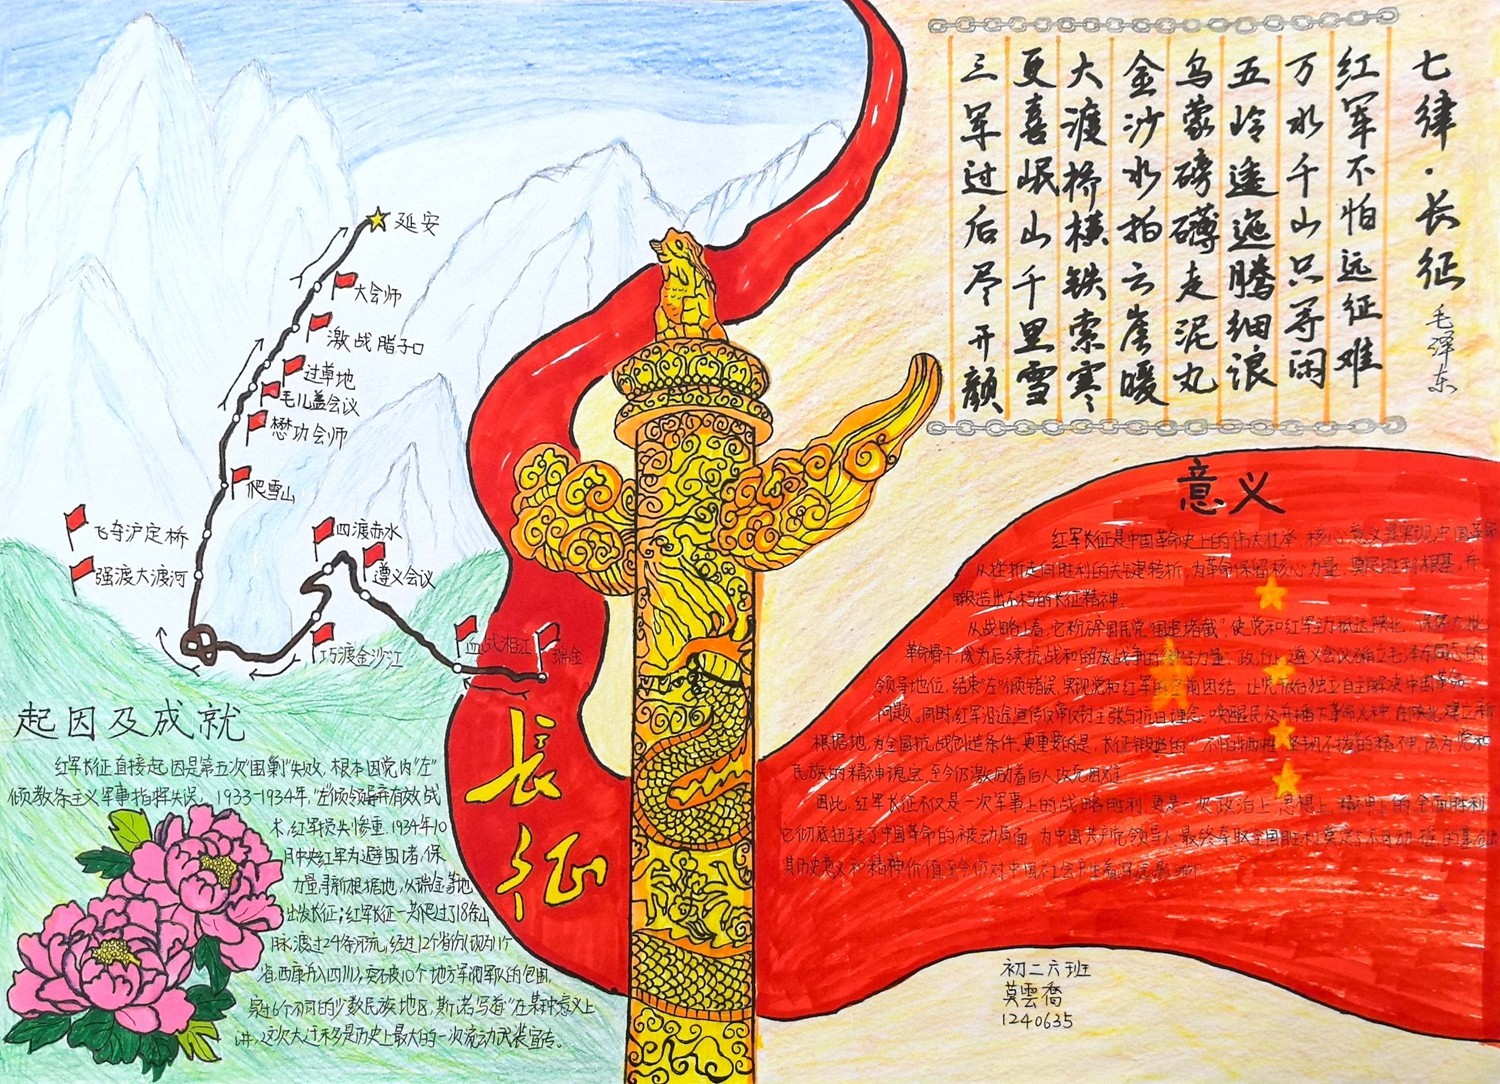 七律·长征
毛泽东
红军不怕远征难
万水千山只等闲
五岭逶迤腾细浪
乌蒙磅礴走泥丸
金沙水拍云崖暖
大渡桥横铁索寒
更喜岷山千里雪
三军过后尽开颜
延安
大会师
激战腊子口
过草地
毛儿盖会议
懋功会师
爬雪山
飞夺沪定桥
强渡大渡河
四渡赤水
遵义会议
巧渡金沙江
血战湘江
瑞金
长征
起因及成就
红军长征直接起因是第五次"围剿"失败,根本因党内"左"
倾教条主义军事指挥失误。1933-1934年,"左"倾领导弃有效战
术,红军损失惨重。1934年10
月中央红军为避围堵,保
力量寻新根据地,从瑞金等地
出发长征;红军长征一共爬过了18条山
脉,渡过24条河流,经过12个省份
省,西康并入四川),突破10个地方军阀军队的包围,
6个不同的少数民族地区,斯诺写道"在某种意义上
讲,这次大迁移是历史上最大的一次流动武装宣传。
意义
红军长征是中国革命史上的伟大壮举,核心意义是实现中国革命
从挫折走向胜利的关键转折,为革命保留核心力量,奠定胜利根基,并
锻造出不朽的长征精神。
从战略上看,它粉碎国民党"围追堵截",使党和红军主力抵达陕北,保存大批
革命骨干,成为后续抗战和解放战争的力量;政治上,遵义会议确立毛泽东同志的
领导地位,结束"左"倾错误,实现党和红军的空前团结,让党能独立自主解决中国革命
问题。同时,红军沿途宣传反帝反封主张与抗日理念,唤醒民众并播下革命火种,在陕北建立新
根据地,为全国抗战创造条件。更重要的是,长征锻造的"不怕牺牲、坚韧不拔"的精神,成为党和
民族的精神瑰宝,至今仍激励着后人攻克困难。
因此,红军长征不仅是一次军事上的战略胜利,更是一次政治上、思想上、精神上的全面胜利,
它彻底扭转了中国革命的被动局面,为中国共产党领导人最终夺取全国胜利奠定了不可动摇的基础,
其历史意义和精神价值至今仍对中国社会产生着深远影响。
初二六班
莫雲喬
1240635